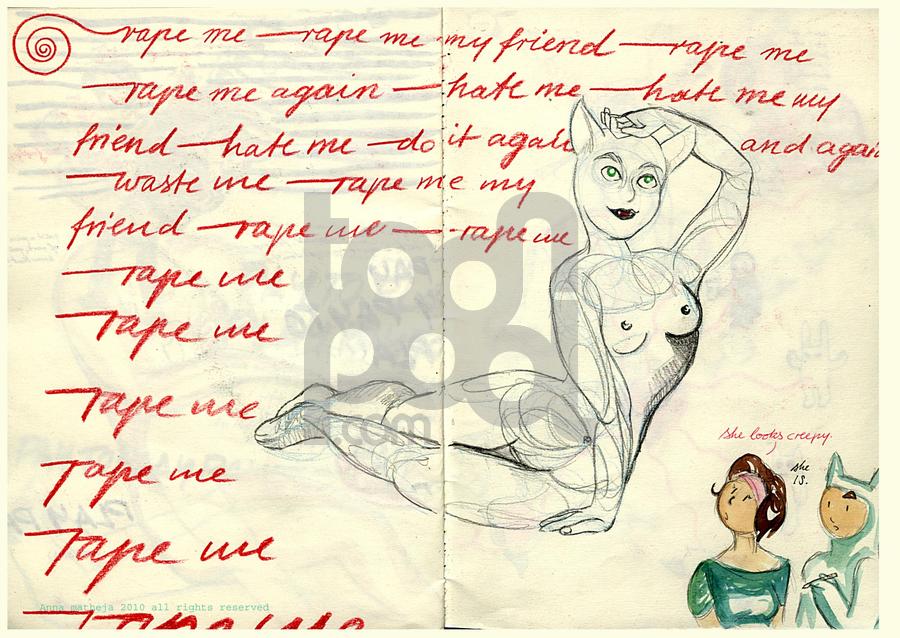 rape me — rape me my friend — rape me
rape me again — hate me — hate me my
friend — hate me — do it again and again
— waste me — rape me my
friend — rape me — rape me
— rape me
— rape me
rape me
rape me
rape me
rape me
she looks creepy.
she
is.
toonpool
.com
Anna matheja 2010 all rights reserved